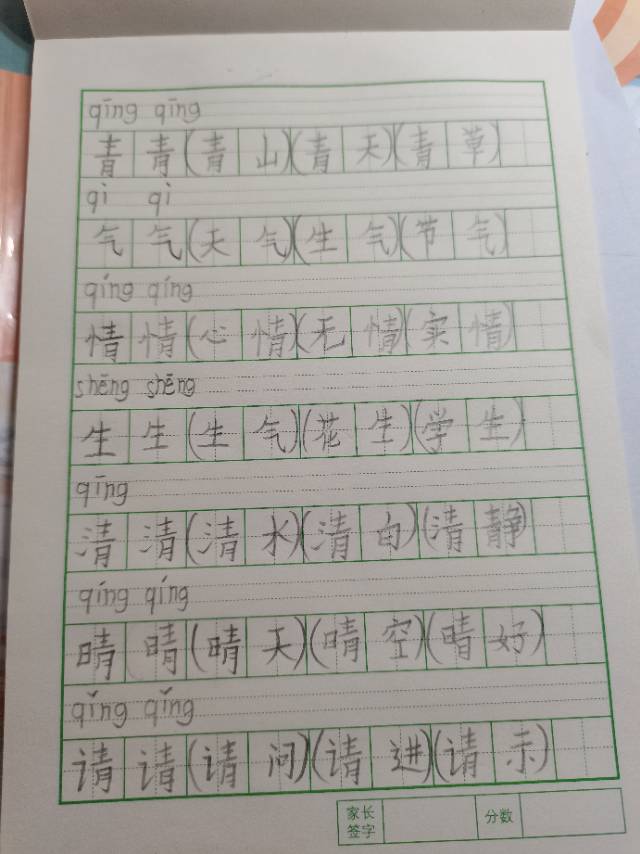 qīng qīng
青青(青山)(青天)(青草)
qì qì
气气(天气)(生气)(节气)
qíng qíng
情情(心情)(无情)(实情)
shēng shēng
生生(生气)(花生)(学生)
qīng
清清(清水)(清白)(清静)
qíng qíng
晴晴(晴天)(晴空)(晴好)
qǐng qǐng
请请(请问)(请进)(请示)
家长签字 分数